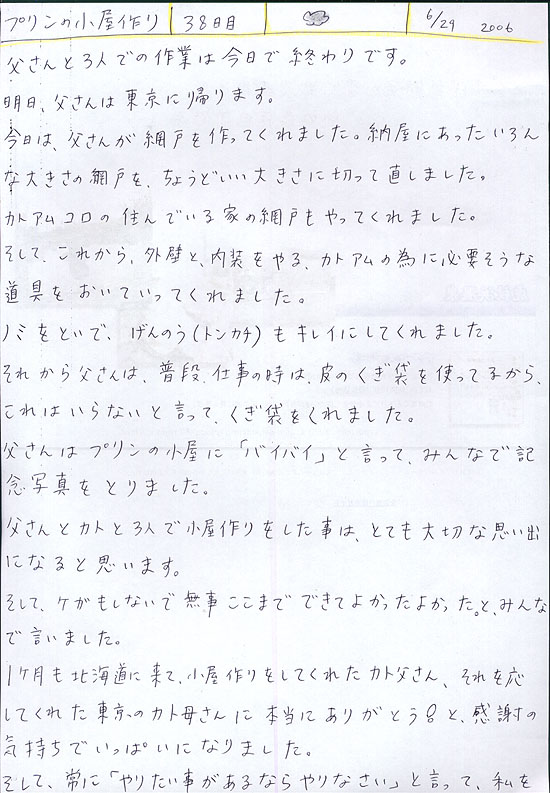 プリンの小屋作り 38日目 6/29 2006
父さんと3人での作業は今日で終わりです。
明日、父さんは東京に帰ります。
今日は、父さんが網戸を作ってくれました。納屋にあったいろん
な大きさの網戸を、ちょうどいい大きさに切って直しました。
カトアムコロの住んでいる家の網戸もやってくれました。
そして、これから、外壁と、内装をやる、カトアムの為に必要そうな
道具をおいていってくれました。
ノミをといで、げんのう(トンカチ)もキレイにしてくれました。
それから父さんは、普段、仕事の時は、皮のくぎ袋を使ってるから、
これはいらないと言って、くぎ袋をくれました。
父さんはプリンの小屋に「バイバイ」と言って、みんなで記
念写真をとりました。
父さんとカトと3人で小屋作りをした事は、とても大切な思い出
になると思います。
そして、ケガもしないで無事ここまでできてよかったよかった。と、みんな
で言いました。
1ヶ月も北海道に来て、小屋作りをしてくれたカト父さん、それを応
してくれた東京のカト母さんに本当にありがとう!と、感謝の
気持ちでいっぱいになりました。
そして、常に「やりたい事があるならやりなさい」と言って、私を